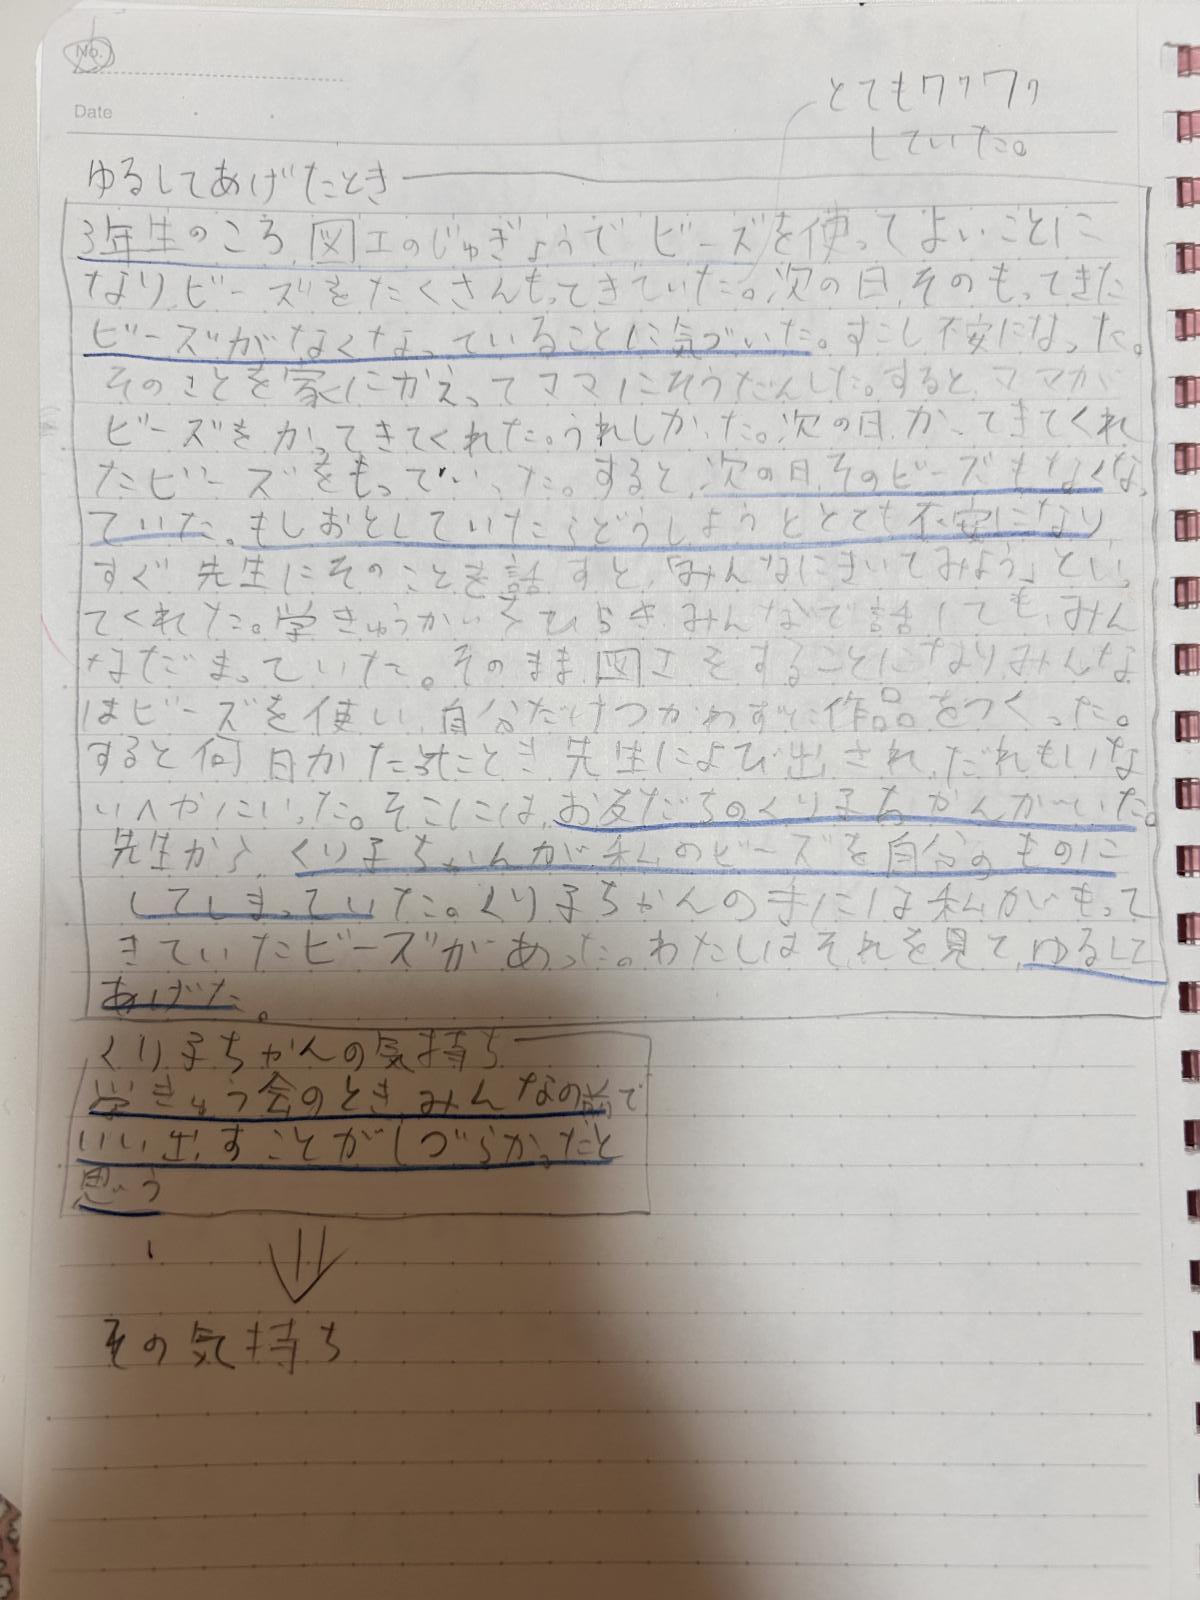 No.
Date
とてもワクワク
していた。
ゆるしてあげたとき
3年生のころ、図工のじゅぎょうでビーズを使ってよいことに
なり、ビーズをたくさんもってきていた。次の日、そのもってきた
ビーズがなくなっていることに気づいた。すこし不安になった。
そのことを家にかえってママにそうだんした。すると、ママが
ビーズをかってきてくれた。うれしかった。次の日、かってきてくれ
たビーズをもっていった。すると、次の日、そのビーズもなくなっ
ていた。もしおとしていたらどうしようととても不安になり、
すぐ先生にそのことを話すと、「みんなにきいてみよう」といっ
てくれた。学きゅうかいをひらき、みんなで話しても、みん
なだまっていた。そのまま図工をすることになりみんな
はビーズを使い、自分だけつかわずに作品をつくった。
すると何日かたったとき先生によび出され、だれもいな
いへやにいった。そこには、お友だちのくり子ちゃんがいた。
先生から、くり子ちゃんが私のビーズを自分のものに
してしまっていた。くり子ちゃんの手には私がもって
きていたビーズがあった。わたしはそれを見て、ゆるして
あげた。
くり子ちゃんの気持ち
学きゅう会のとき、みんなの前で
いい出すことがしづらかったと
思う
その気持ち